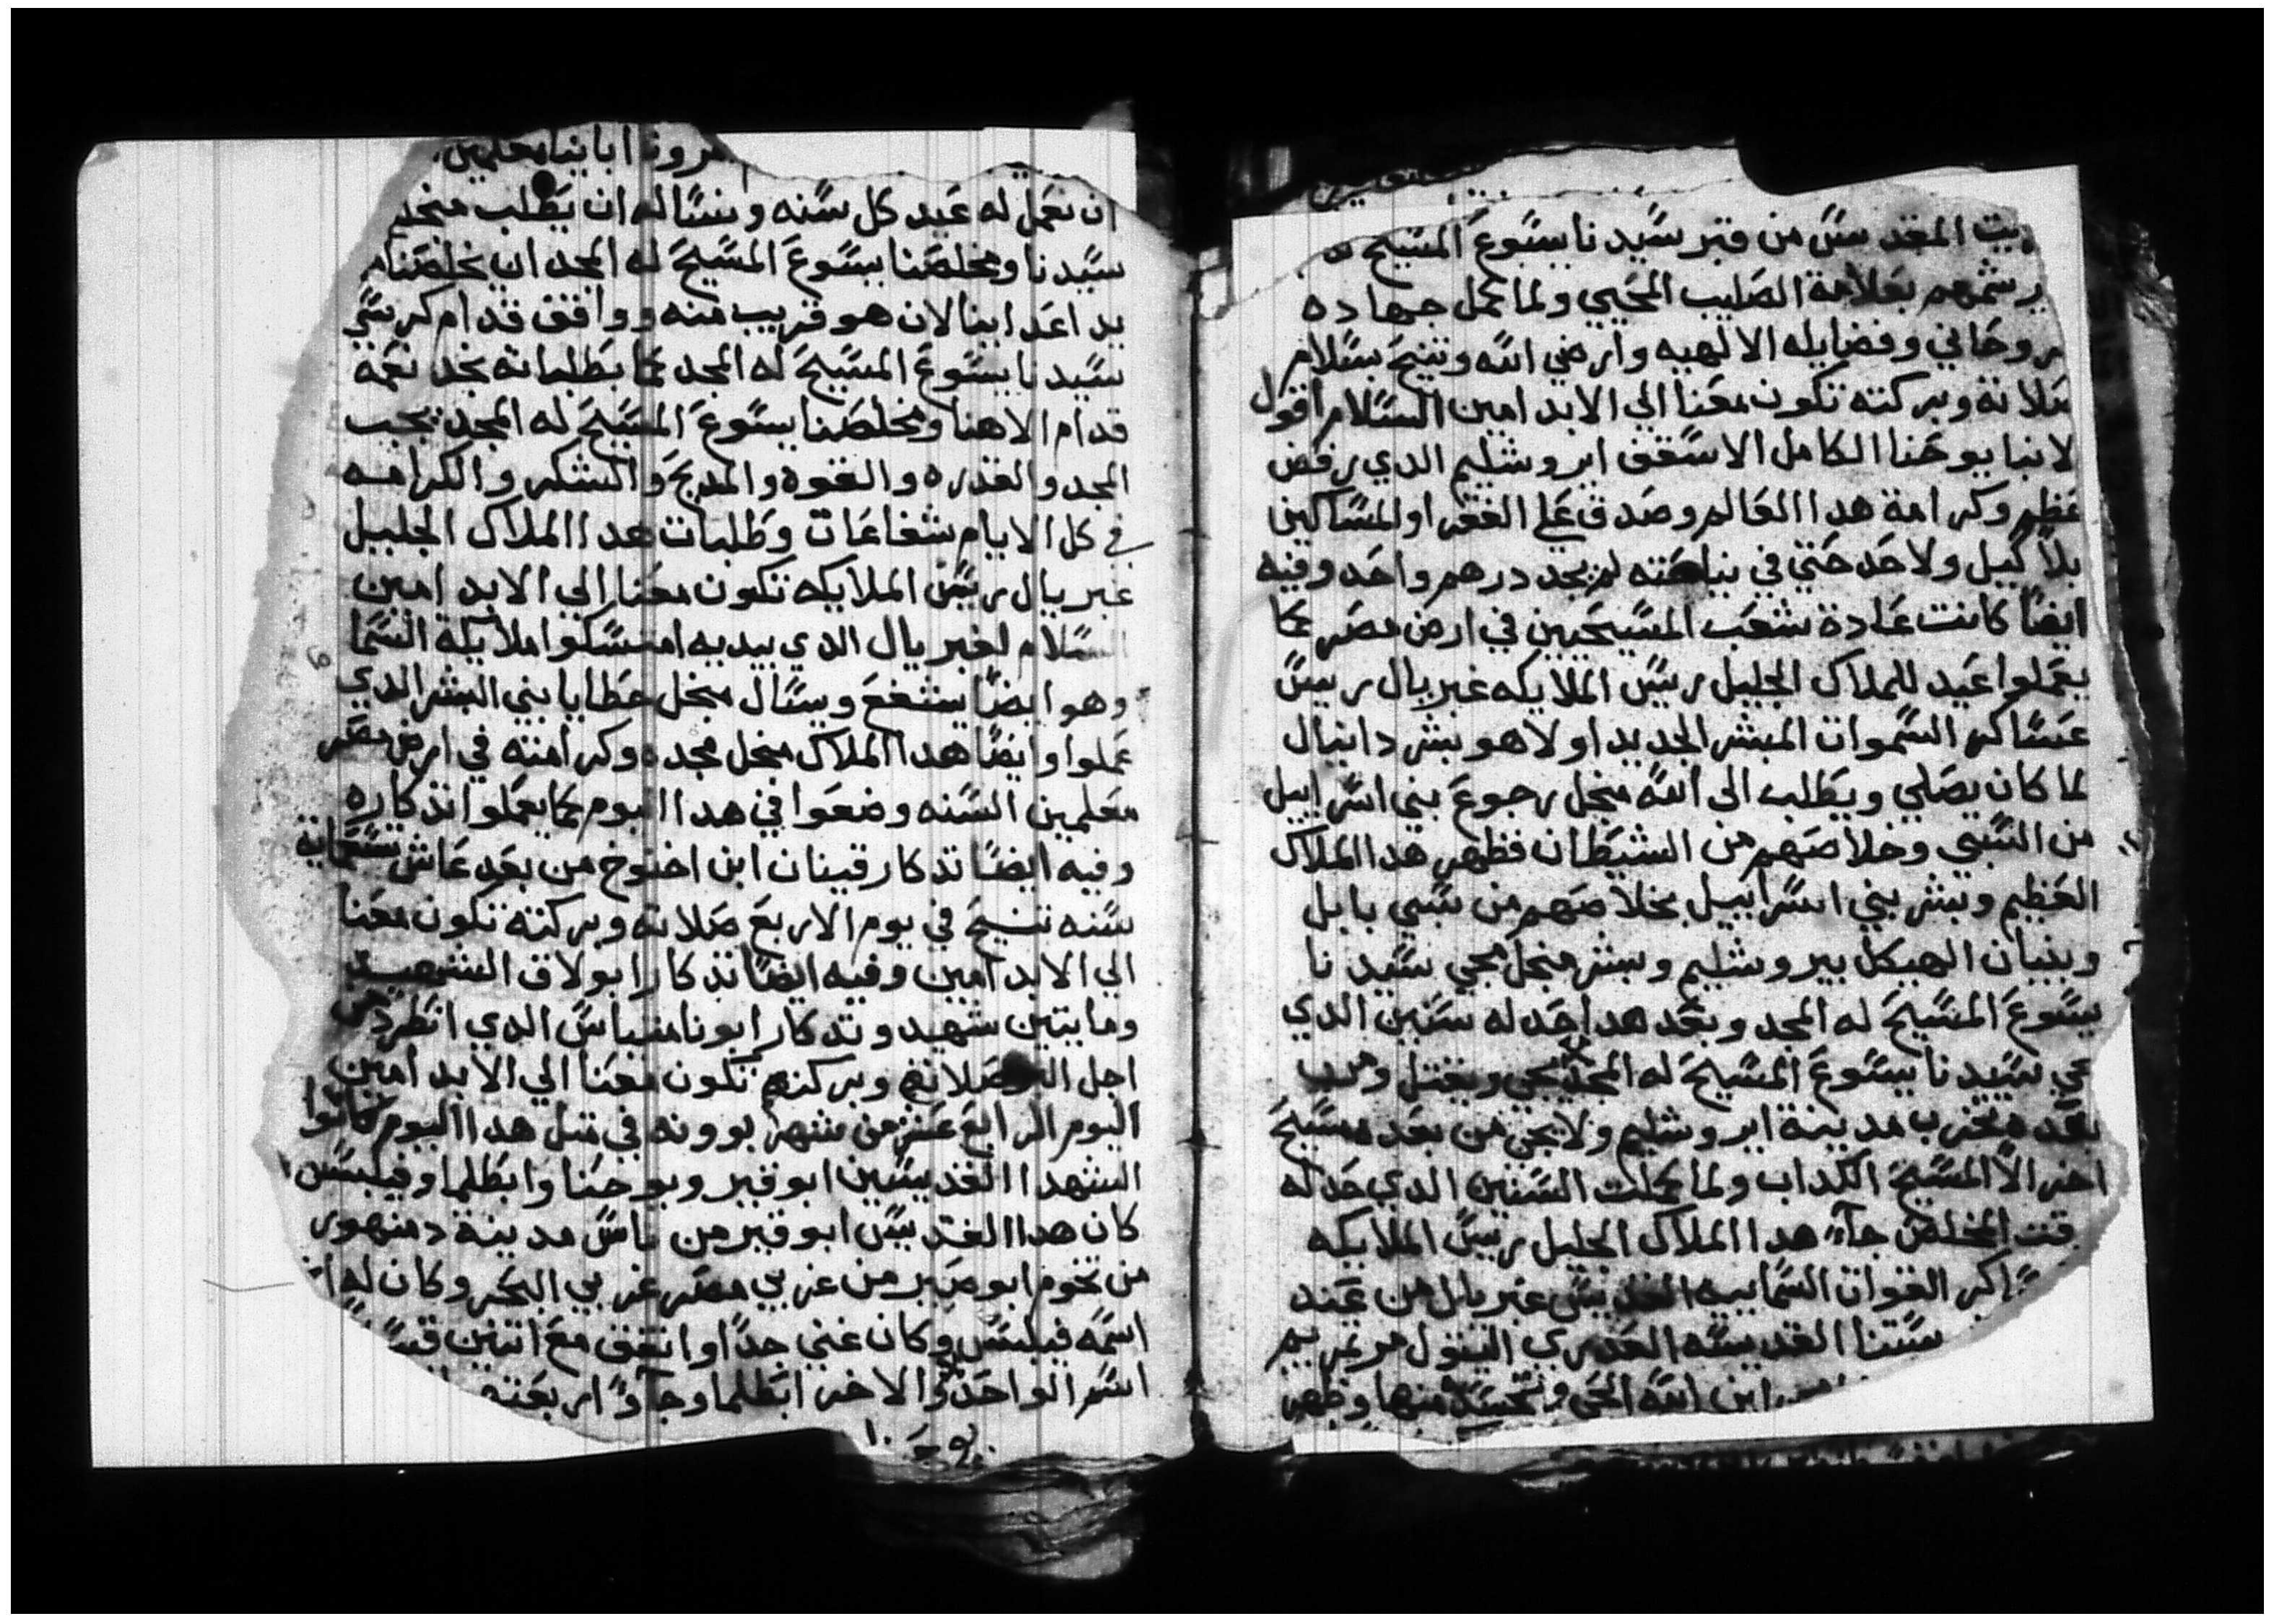 بيت المقدس من قبر سيدنا يسوع المسيح
رشمهم بعلامة الصليب المحيي ولما كمل جهاده
روحاني وفضايله الالهيه وارضي الله وتنيح بسلام
صلاته وبركته تكون معنا الي الابد امين السلام اقول
لانبا يوحنا الكامل الاسقف ايروشليم الدي رفض
عظم وكرامة هدا العالم وصدق علي الفقرا والمساكين
بلا كيل ولاحد حتي في نياحته لم يجد درهم واحد وفيه
ايضا كانت عادة شعب المسيحيين في ارض مصر كما
يعملوا عيد للملاك الجليل رييس الملايكه غبريال رييس
عساكر السموات المبشر الجديد اولا هو بشر دانيال
لما كان يصلي ويطلب الى الله منجل رجوع بني اسراييل
من السبي وخلاصهم من الشيطان فظهر هدا الملاك
العظيم وبشر بني اسراييل بخلاصهم من سبي بابل
وبنيان الهيكل بيروشليم وبشر منجل مجي سيدنا
يسوع المسيح له المجد وبعد هدا حد له سنين الدي
مجي سيدنا يسوع المسيح له المجد يجي ويقتل ومن
بعده تخرب مدينة ايروشليم ولا يجي من بعد مسيح
اخر الا المسيح الكداب ولما كملت السنين الدي حد له
وقت المخلص جآء هدا الملاك الجليل رييس الملايكه
القوات السماييه غبريال من عند
ستنا القديسه العدري البتول مريم
ابن الله الحي وتجسد منها وظهر
ابانيا معلمين
ان نعمل له عيد كل سنه ونساله ان يطلب منجل
سيدنا ومخلصنا يسوع المسيح له المجد ان يخلصنا من
يد اعداينا لان هو قريب منه وواقف قدام كرسي
سيدنا يسوع المسيح له المجد كما بطلباته نجد نعمه
قدام الاهنا ومخلصنا يسوع المسيح له المجد يجب
المجد والقدره والقوه والمديح والشكر والكرامه
في كل الايام شفاعات وطلبات هدا الملاك الجليل
غبريال رييس الملايكه تكون معنا الي الابد امين
السلام لغبريال الدي بيديه امسكوا ملايكة السما
وهو ايضا يشفع ويسال منجل خطايا بني البشر الدي
عملوا وايضا هدا الملاك منجل مجده وكرامته في ارض مصر
معلمين السنه وضعوا في هدا اليوم كما يعملوا تدكاره
وفيه ايضا تدكار قينان ابن اخنوخ من بعد عاش ستماية
سنه تنيح في يوم الاربع صلاته وبركته تكون معنا
الي الابد امين وفيه ايضا تدكار ابولاق الشهيد
ومايتين شهيد وتدكار ابونا متياس الدي انطرد من
اجل صلاتهم وبركتهم تكون معنا الي الابد امين
اليوم الرابع عشر من شهر بوونه في متل هدا اليوم كانوا
الشهدا القديسين ابوقير ويوحنا وابطلما وفيلبس
كان هدا القديس ابوقير من ناس مدينة دمنهور
من تخوم ابوصير من غربي مصر غربي البحر وكان له اخ
اسمه فيلبس وكان غني جدا واتفق مع اتنين
اسم الواحد والاخر ابطلما وجآوا اربعتهم